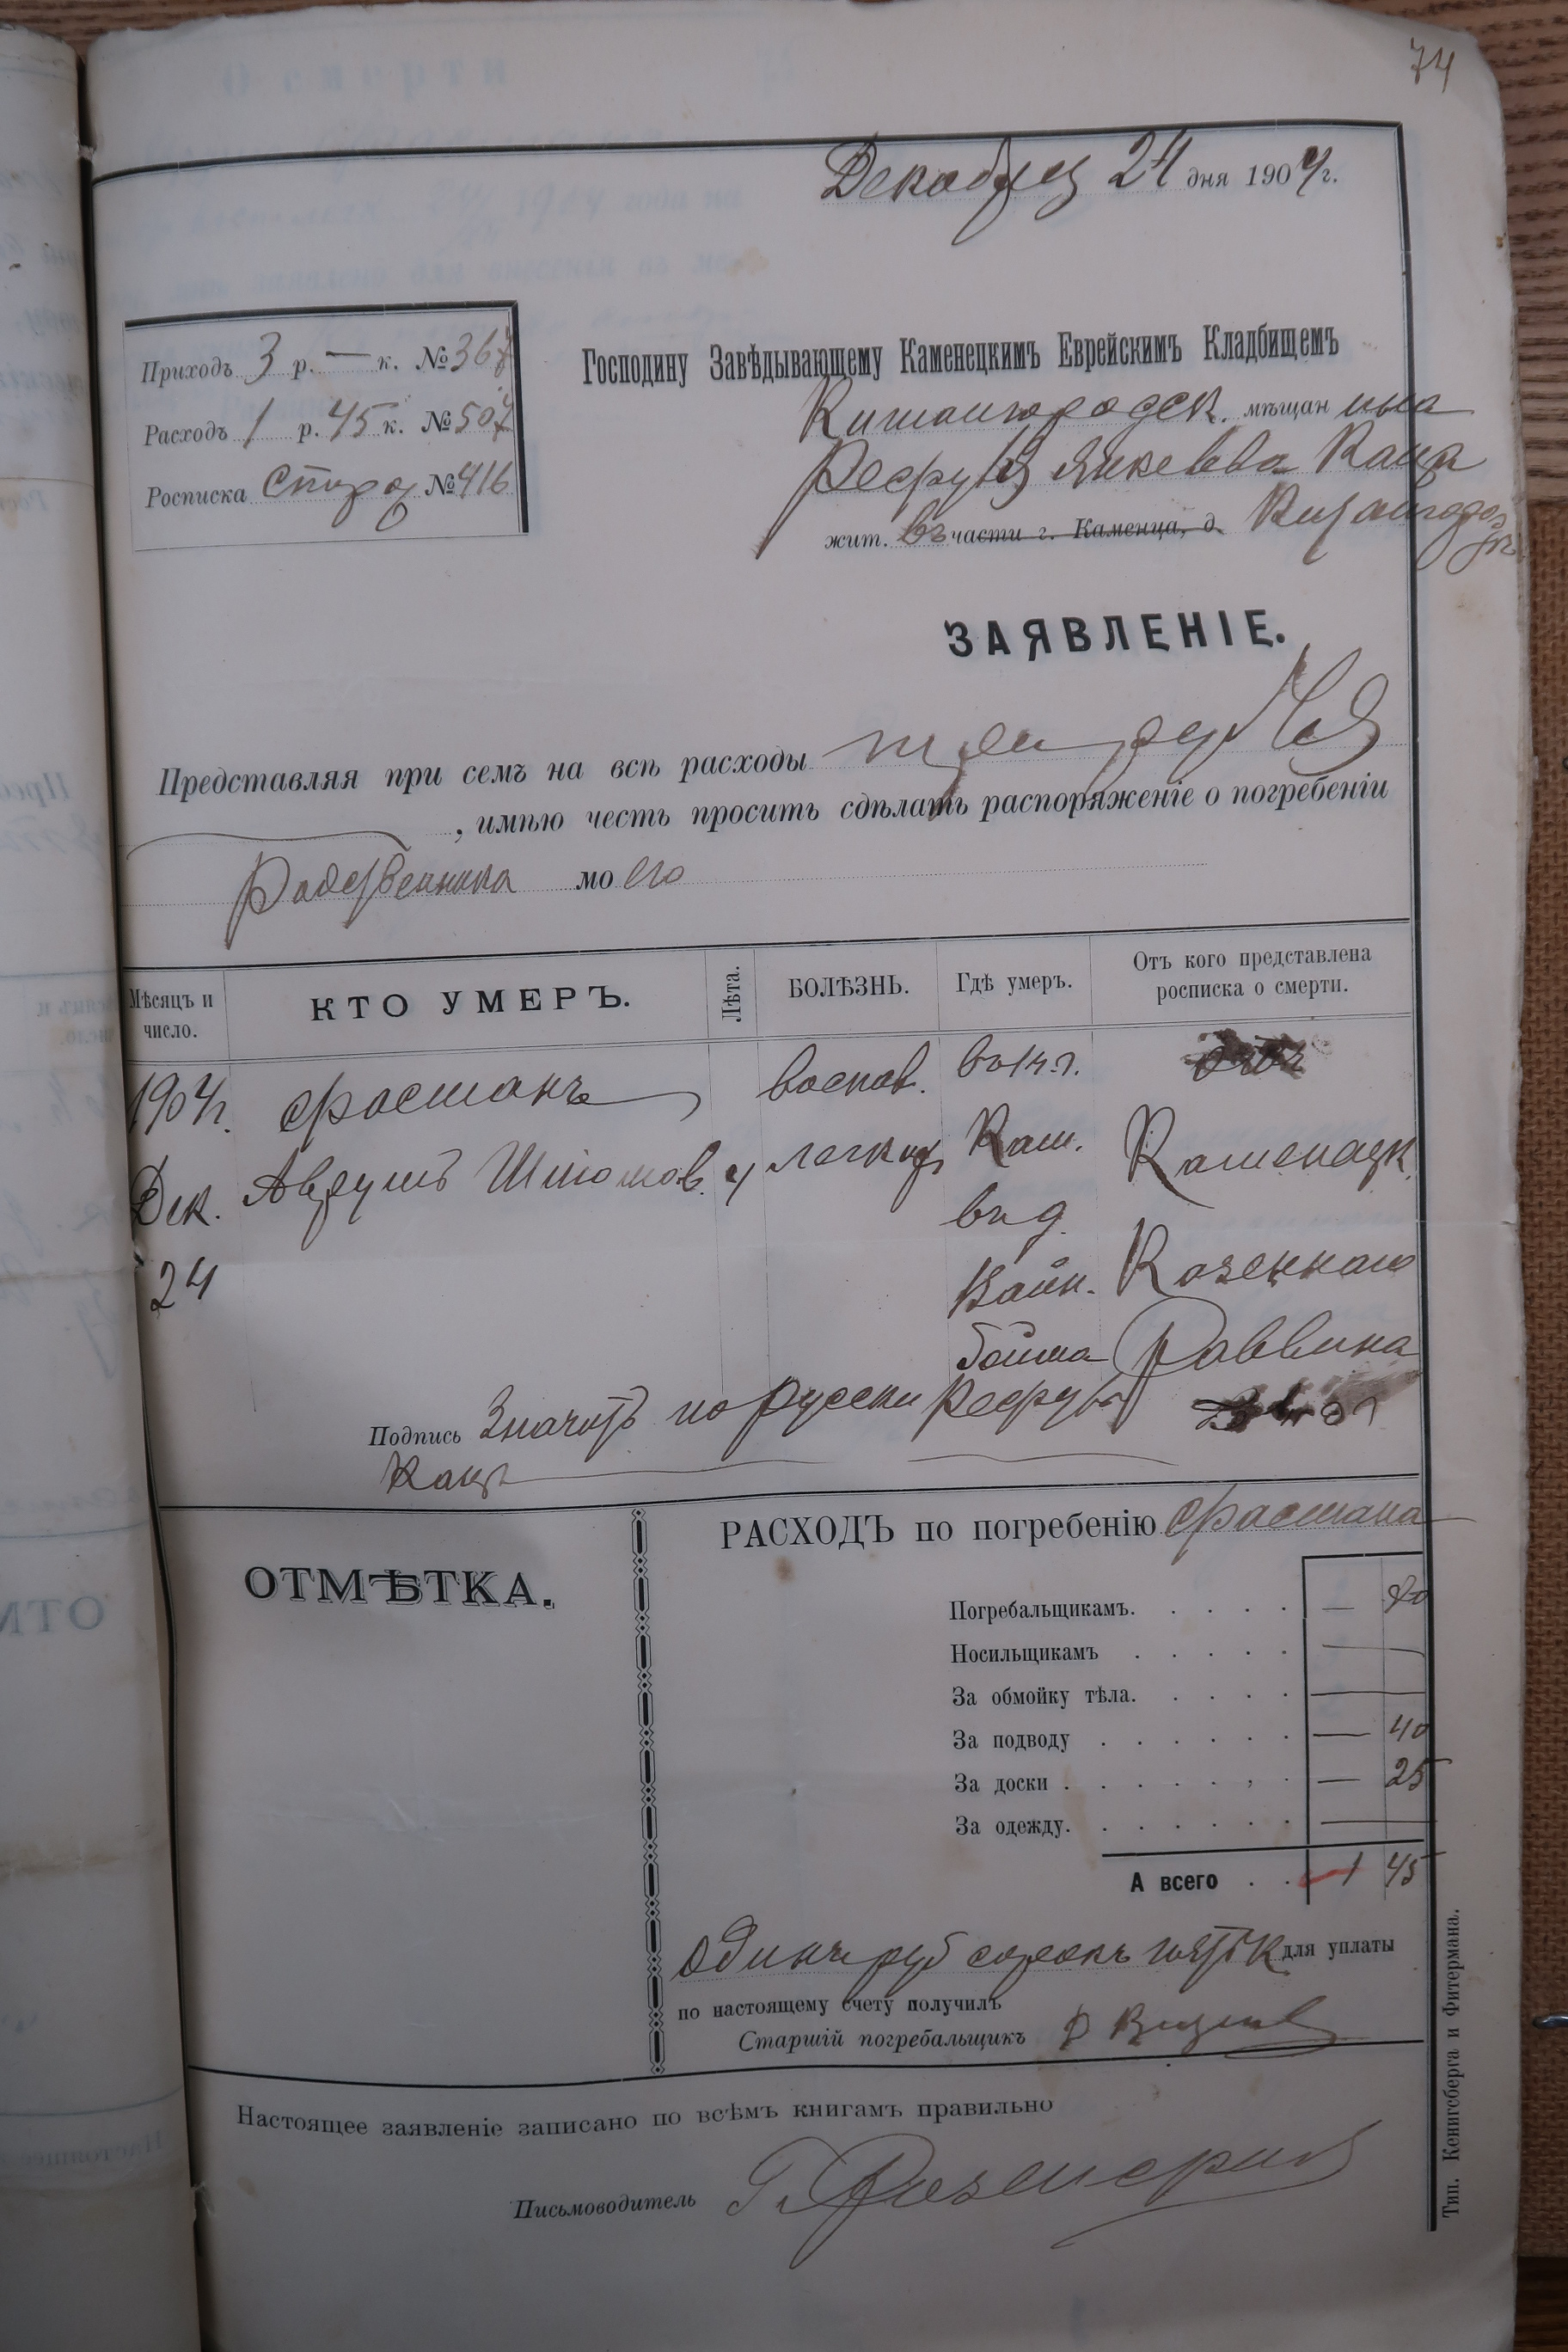 74
Декабря 24 дня 1904 г.
Приходъ 3 р. — к. № 367
Расходъ 1 р. 45 к. № 507
Росписка № 416
Господину Завѣдывающему Каменецкимъ Еврейскимъ Кладбищемъ
Китайгородск. мѣщанина
Каца
жит. въ части г. Каменца, д.
ЗАЯВЛЕНІЕ.
Представляя при семъ на всѣ расходы три рубля
, имѣю честь просить сдѣлать распоряженіе о погребеніи
Родственника моего
Мѣсяцъ и число.
КТО УМЕРЪ.
Лѣта.
БОЛѢЗНЬ.
Гдѣ умеръ.
Отъ кого представлена росписка о смерти.
1904 г. воспал. въ г.
Дек. 4 легкихъ Кам. Каменецк.
24 въ д. Казеннаго
Раввина
Подпись Значитъ по русски
Кацъ
ОТМѢТКА.
РАСХОДЪ по погребенію
Погребальщикамъ. — 80
Носильщикамъ —
За обмойку тѣла. —
За подводу — 40
За доски — 25
За одежду. —
А всего 1 45
Одинъ руб сорокъ пять к для уплаты
по настоящему счету получилъ
Старшій погребальщикъ
Настоящее заявленіе записано по всѣмъ книгамъ правильно
Письмоводитель
Тип. Кенигсберга и Фитермана.